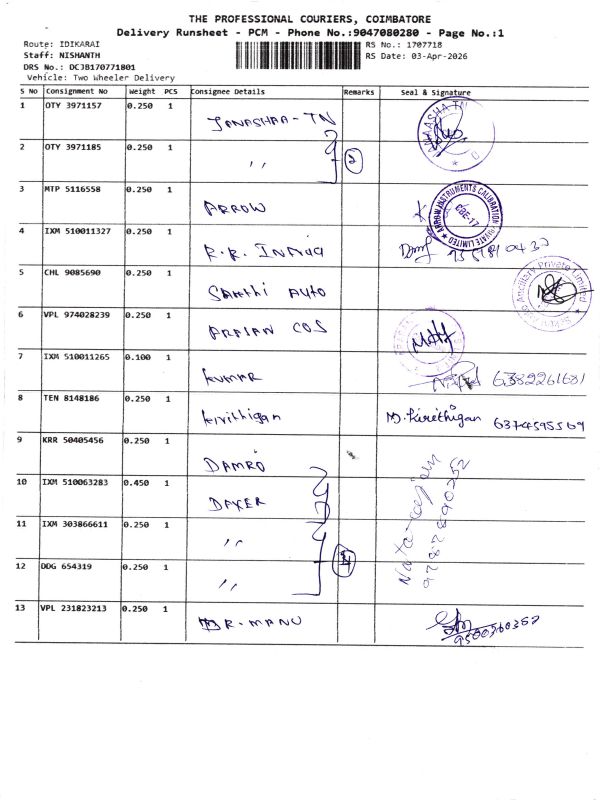 THE PROFESSIONAL COURIERS, COIMBATORE
Delivery Runsheet - PCM - Phone No.:9047080280 - Page No.:1
Route: IDIKARAI
RS No.: 1707718
Staff: NISHANTH
RS Date: 03-Apr-2026
DRS No.: DCJB170771801
Vehicle: Two Wheeler Delivery
S No Consignment No Weight PCS Consignee Details Remarks Seal & Signature
1 OTY 3971157 0.250 1 JANASHAA-TN
2 OTY 3971185 0.250 1 ,, 2
3 MTP 5116558 0.250 1 ARROW ARROW INSTRUMENTS CALIBRATION PRIVATE LIMITED CBE-17
4 IXM 510011327 0.250 1 R.R. INDIA
5 CHL 9085690 0.250 1 SAKTHI AUTO Ancillary Private Limited
6 VPL 974028239 0.250 1 COS
7 IXM 510011265 0.100 1 KUMAR 6382261681
8 TEN 8148186 0.250 1 Kirithigan M. Kirethigan 6374595569
9 KRR 50405456 0.250 1 DAMRO
10 IXM 510063283 0.450 1 DAKER
11 IXM 303866611 0.250 1 ,,
12 DDG 654319 0.250 1 ,, 4
13 VPL 231823213 0.250 1 DR-MANU 9500360352